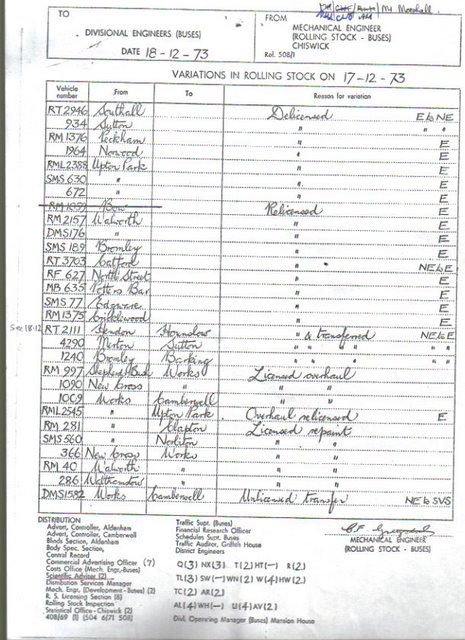 TO
DIVISIONAL ENGINEERS (BUSES)
DATE 18-12-73
FROM
MECHANICAL ENGINEER
(ROLLING STOCK - BUSES)
CHISWICK
Rol. 508/1
VARIATIONS IN ROLLING STOCK ON 17-12-73
Vehicle number From To Reason for variation
RT 2946 Southall Delicensed E to NE
934 Sutton " " "
RM 1376 Peckham " E
1964 Norwood " E
RML 2388 Upton Park " E
SMS 630 " " E
672 " " E
RM 1059 Bow Relicensed E
RM 2157 Walworth " E
DMS 176 " " E
SMS 189 Bromley " E
RT 3703 Catford " NE to E
RF 627 North Street " E
MB 635 Potters Bar " E
SMS 77 Edgware " E
RM 1375 Cricklewood " E
See 18-12 RT 2111 Hendon Hounslow " & transferred NE to E
4290 Merton Sutton " " " "
1240 Bromley Barking " " " "
RM 997 Shepherds Bush Works Licensed overhaul
1090 New Cross " " "
1009 Works Camberwell " "
RML 2545 " Upton Park Overhaul relicensed E
RM 281 " Clapton Licensed repaint
SMS 560 " Norbiton " "
366 New Cross Works " "
RM 40 Walworth " " "
286 Walthamstow " " "
DMS 1582 Works Camberwell Unlicensed transfer NE to SVS
DISTRIBUTION
Advert, Controller, Aldenham
Advert, Controller, Camberwell
Blinds Section, Aldenham
Body Spec. Section,
Central Record
Commercial Advertising Officer (7)
Costs Office (Mech. Eng.-Buses)
Scientific Adviser (2)
Distribution Services Manager
Mech. Engr, (Development - Buses) (2)
R. S. Licensing Section (6)
Rolling Stock Inspection
Statistical Office - Chiswick (2)
408/69 (1) (504 6/71 508)
Traffic Supt. (Buses)
Financial Research Officer
Schedules Supt. Buses
Traffic Auditor, Griffith House
District Engineers
Q (3) NX (3) T (2) HT (-) R (2)
TL (3) SW (-) WN (2) W (4) HW (2)
TC (2) AR (2)
AL (4) WH (-) U (4) AV (2)
Divl. Operating Manager (Buses) Mansion House
MECHANICAL ENGINEER
(ROLLING STOCK - BUSES)